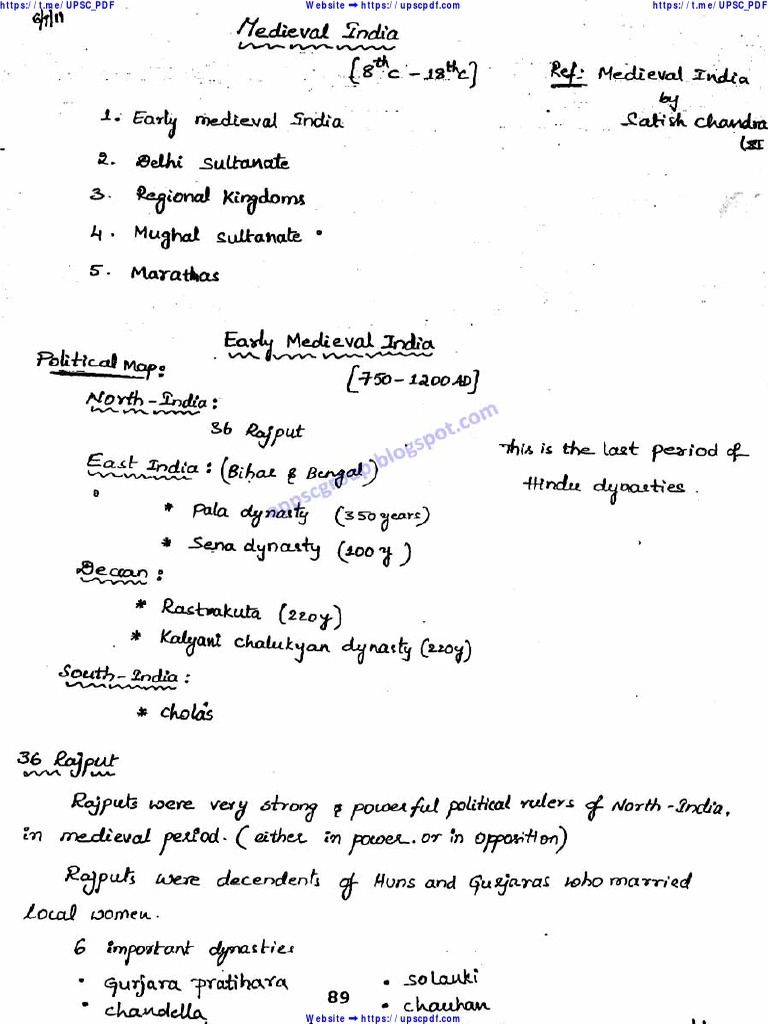 https://t.me/UPSC_PDF Website ➞ https://upscpdf.com https://t.me/UPSC_PDF
6/7/11
Medieval India
[8th c - 18th c]
Ref: Medieval India
by
Satish Chandra
(XI
1. Early medieval India
2. Delhi Sultanate
3. Regional Kingdoms
4. Mughal Sultanate
5. Marathas
Early Medieval India
Political Map:
[750-1200 AD]
North-India:
36 Rajput
This is the last period of
Hindu dynasties.
East India: (Bihar & Bengal)
* Pala dynasty (350 years)
* Sena dynasty (100 y)
Deccan:
* Rastrakuta (220y)
* Kalyani Chalukyan dynasty (220y)
South-India:
* Cholas
appscgroup.blogspot.com
36 Rajput
Rajputs were very strong & powerful political rulers of North-India,
in medieval period. (either in power. or in opposition)
Rajputs were decendents of Huns and Gurjaras who married
local women.
6 important dynasties
• Gurjara pratihara
• solanki
• chandella
• chauhan
89
Website ➞ https://upscpdf.com